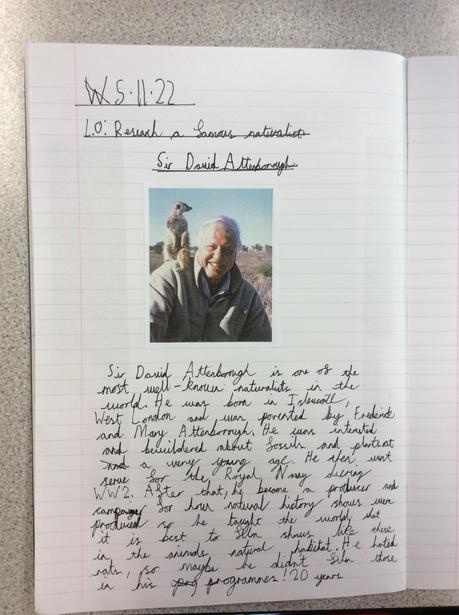 W 5.11.22
L.O: Reseach a famous naturalist
Sir David Attenborough
Sir David Attenborough is one of the
most well-known naturalists in the
world. He was born in Isleworth,
West London and was parented by Frederick
and Mary Attenborough. He was intrested
and bewildered about fossils and plants at
a very young age. He then went
serve for the Royal Navy during
WW2. After that, he become a producer and
campaiger for how natural history shows were
produced so he taught the world that
it is best to film shows like these
in the animals natural habitat. He hated
rats, so maybe he didn't film those
in his programmes! 20 years